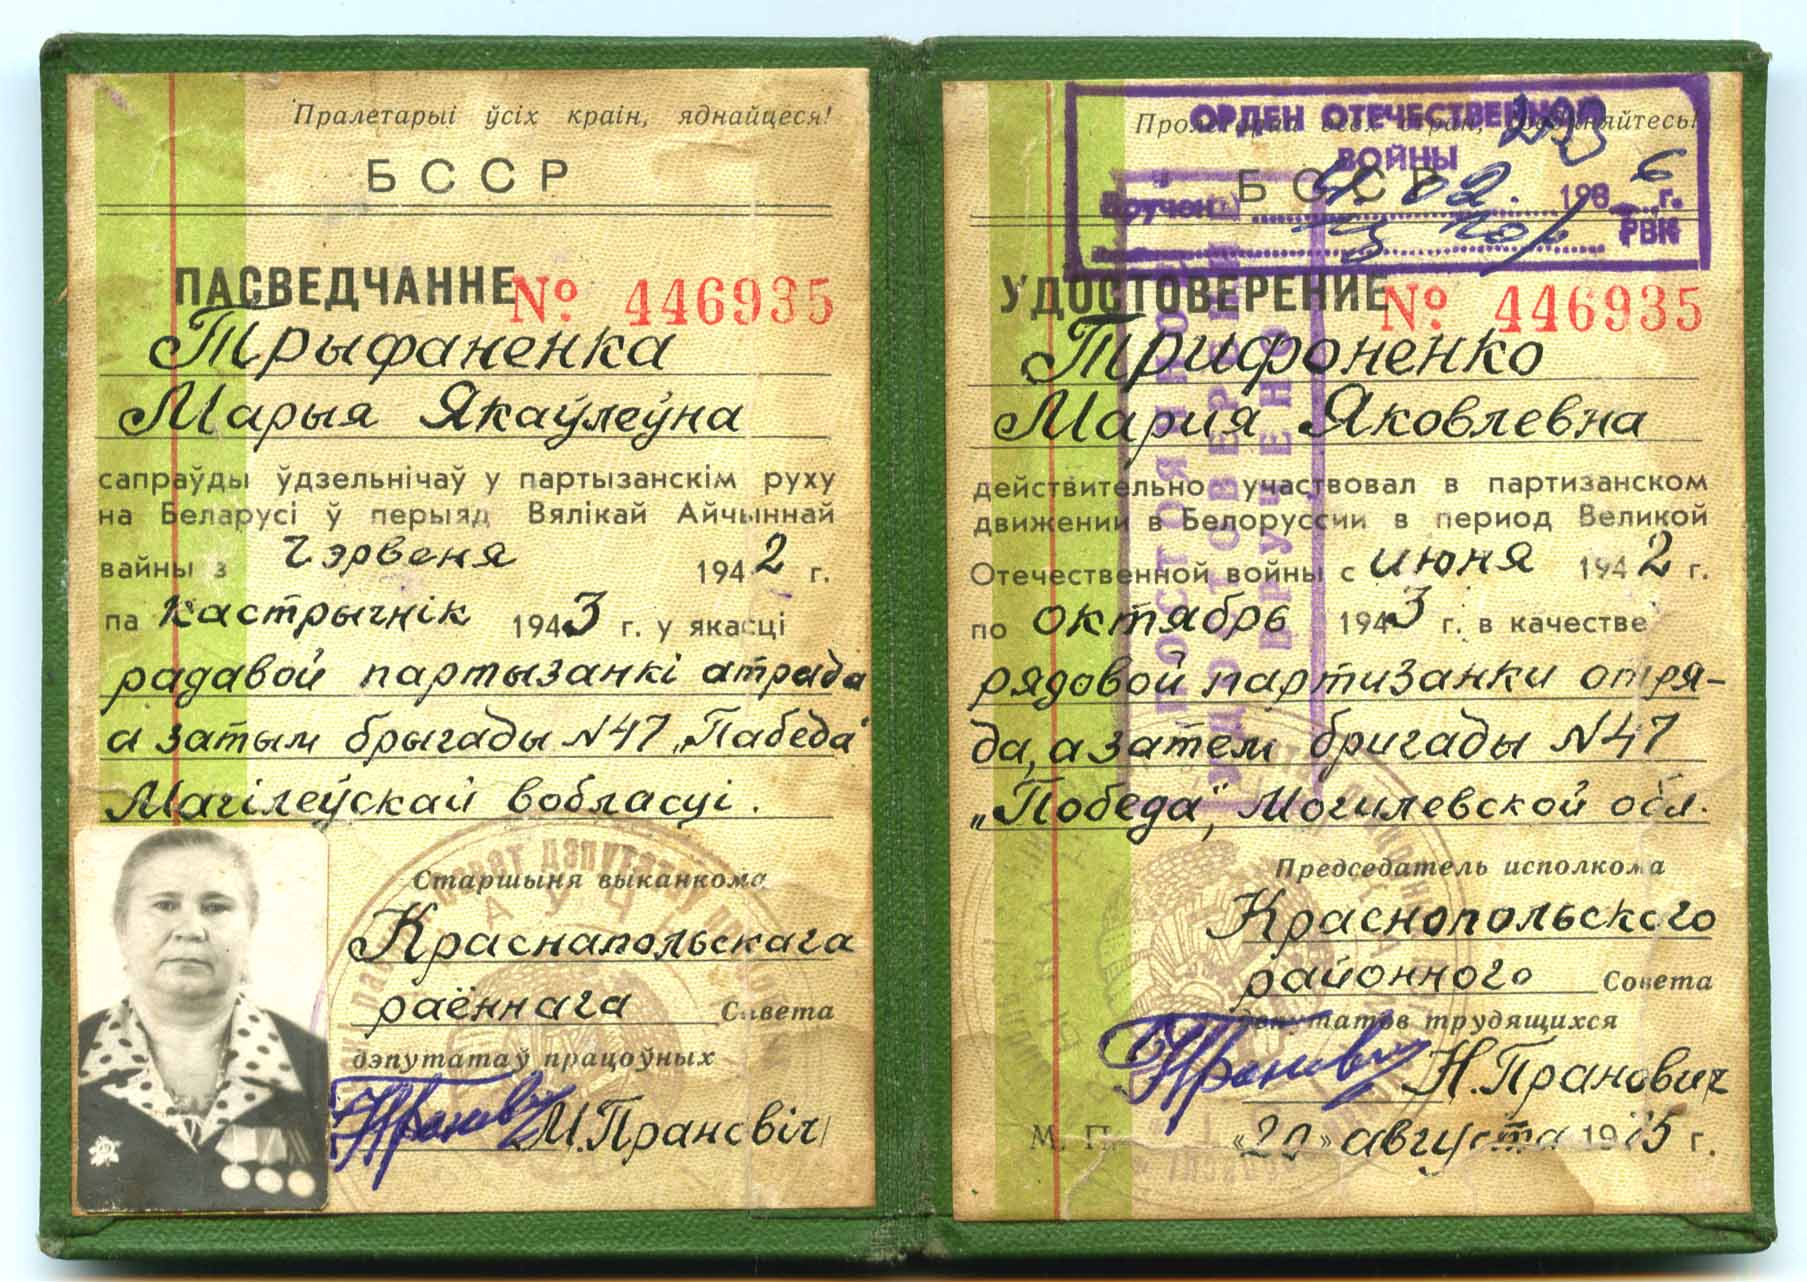 Пралетарыі ўсіх краін, яднайцеся!
БССР
ПАСВЕДЧАННЕ № 446935
Трыфаненка
Марыя Якаўлеўна
сапраўды ўдзельнічаў у партызанскім руху
на Беларусі ў перыяд Вялікай Айчыннай
вайны з чэрвеня 1942 г.
па кастрычнік 1943 г. у якасці
радавой партызанкі атрада
а затым брыгады №47 „Пабеда“
Магілеўскай вобласці.
Старшыня выканкома
Краснапольскага
раённага Савета
дэпутатаў працоўных
М.Прановіч
Пролетарии всех стран, соединяйтесь!
БССР
ОРДЕН ОТЕЧЕСТВЕННОЙ
ВОЙНЫ
Вручен 02. 1986 г.
РВК
УДОСТОВЕРЕНИЕ № 446935
Трифоненко
Мария Яковлевна
действительно участвовал в партизанском
движении в Белоруссии в период Великой
Отечественной войны с июня 1942 г.
по октябрь 1943 г. в качестве
рядовой партизанки отря-
да, а затем бригады №47
„Победа“, Могилевской обл.
Председатель исполкома
Краснопольского
районного Совета
депутатов трудящихся
Н.Пранович
М. П. «20» августа 1975 г.
УДОСТОВЕР
ВРУЧЕНО